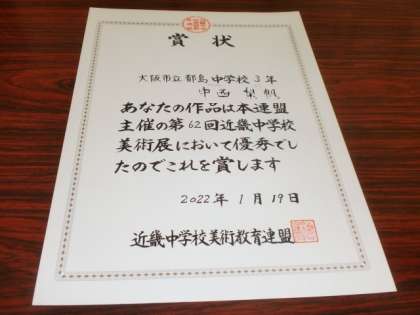 賞状
大阪市立都島中学校3年
中西 梨帆
あなたの作品は本連盟
主催の第62回近畿中学校
美術展において優秀でし
たのでこれを賞します
2022年1月19日
近畿中学校美術教育連盟